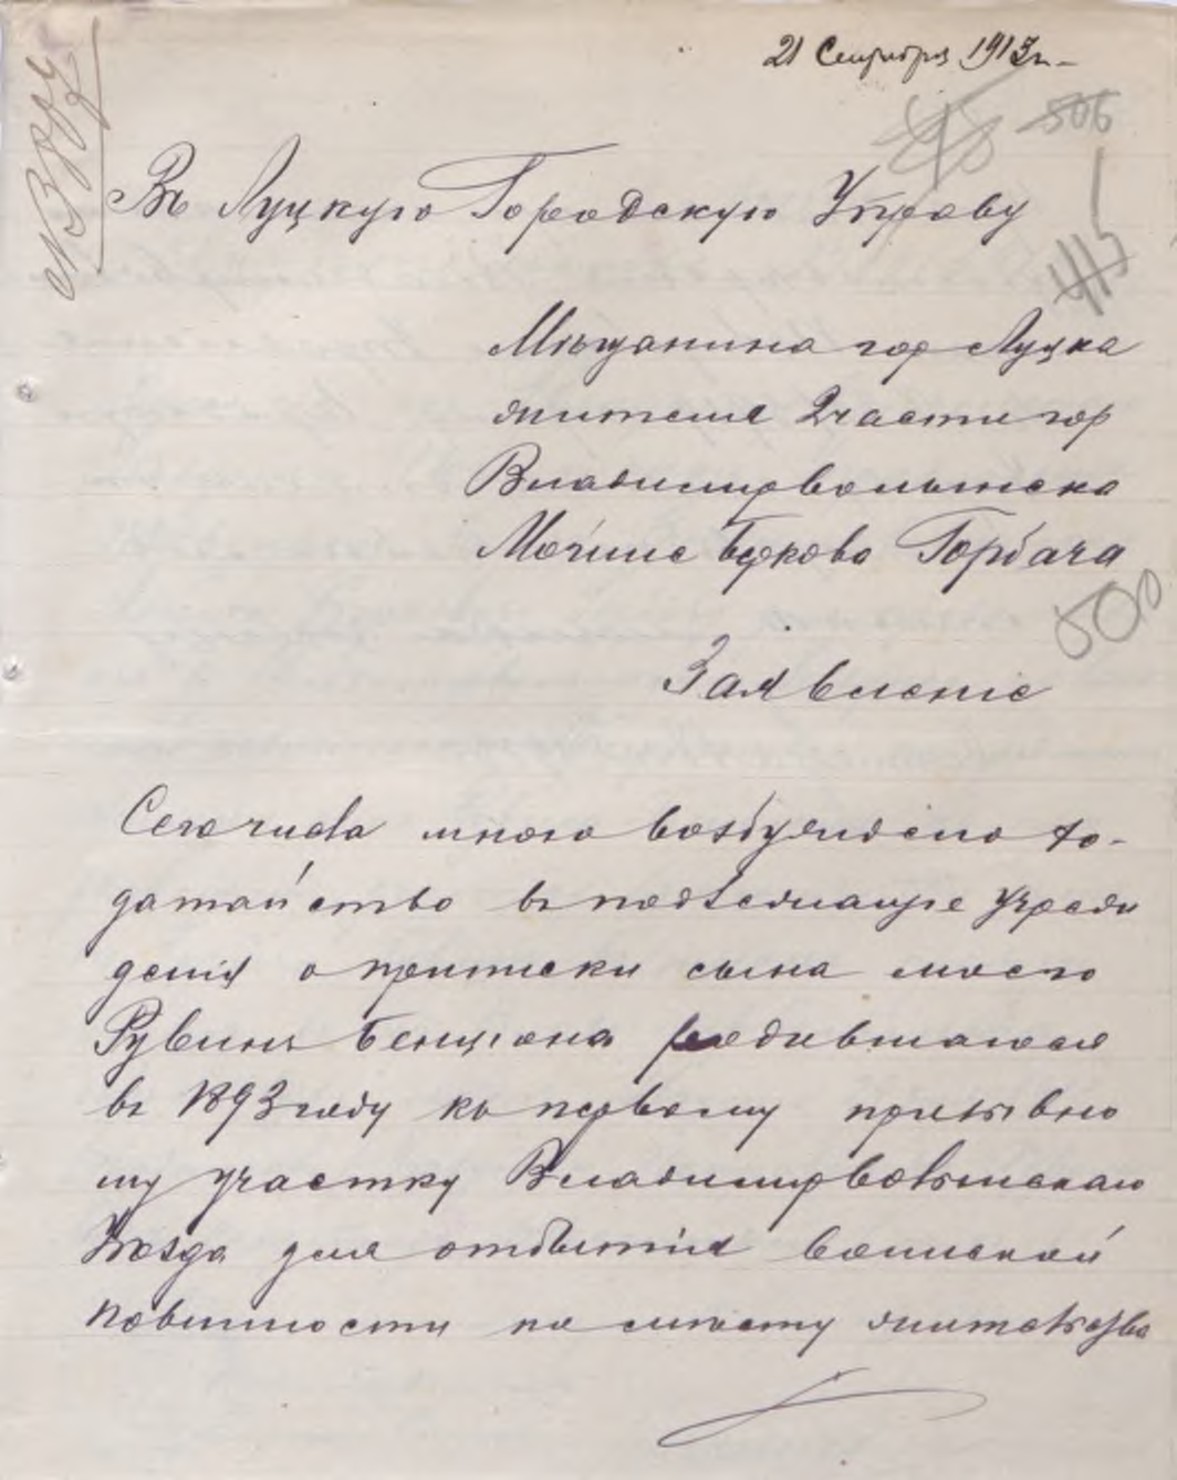 21 Сентября 1913 г.
506
Въ Луцкую Городскую Управу
Мѣщанина гор Луцка
жителя 2 части гор
Владимирволынска
Мойше Беркова Горбача
500
Заявленіе
Сего числа мною возбуждено хо-
датайство въ подлежащіе Учреж
денія о приписки сына моего
Рувинъ Бенціона родившагося
въ 1893 году къ первому призывно
му участку Владимирволынскаго
Уѣзда для отбытія воинской
повинности по мѣсту жительства